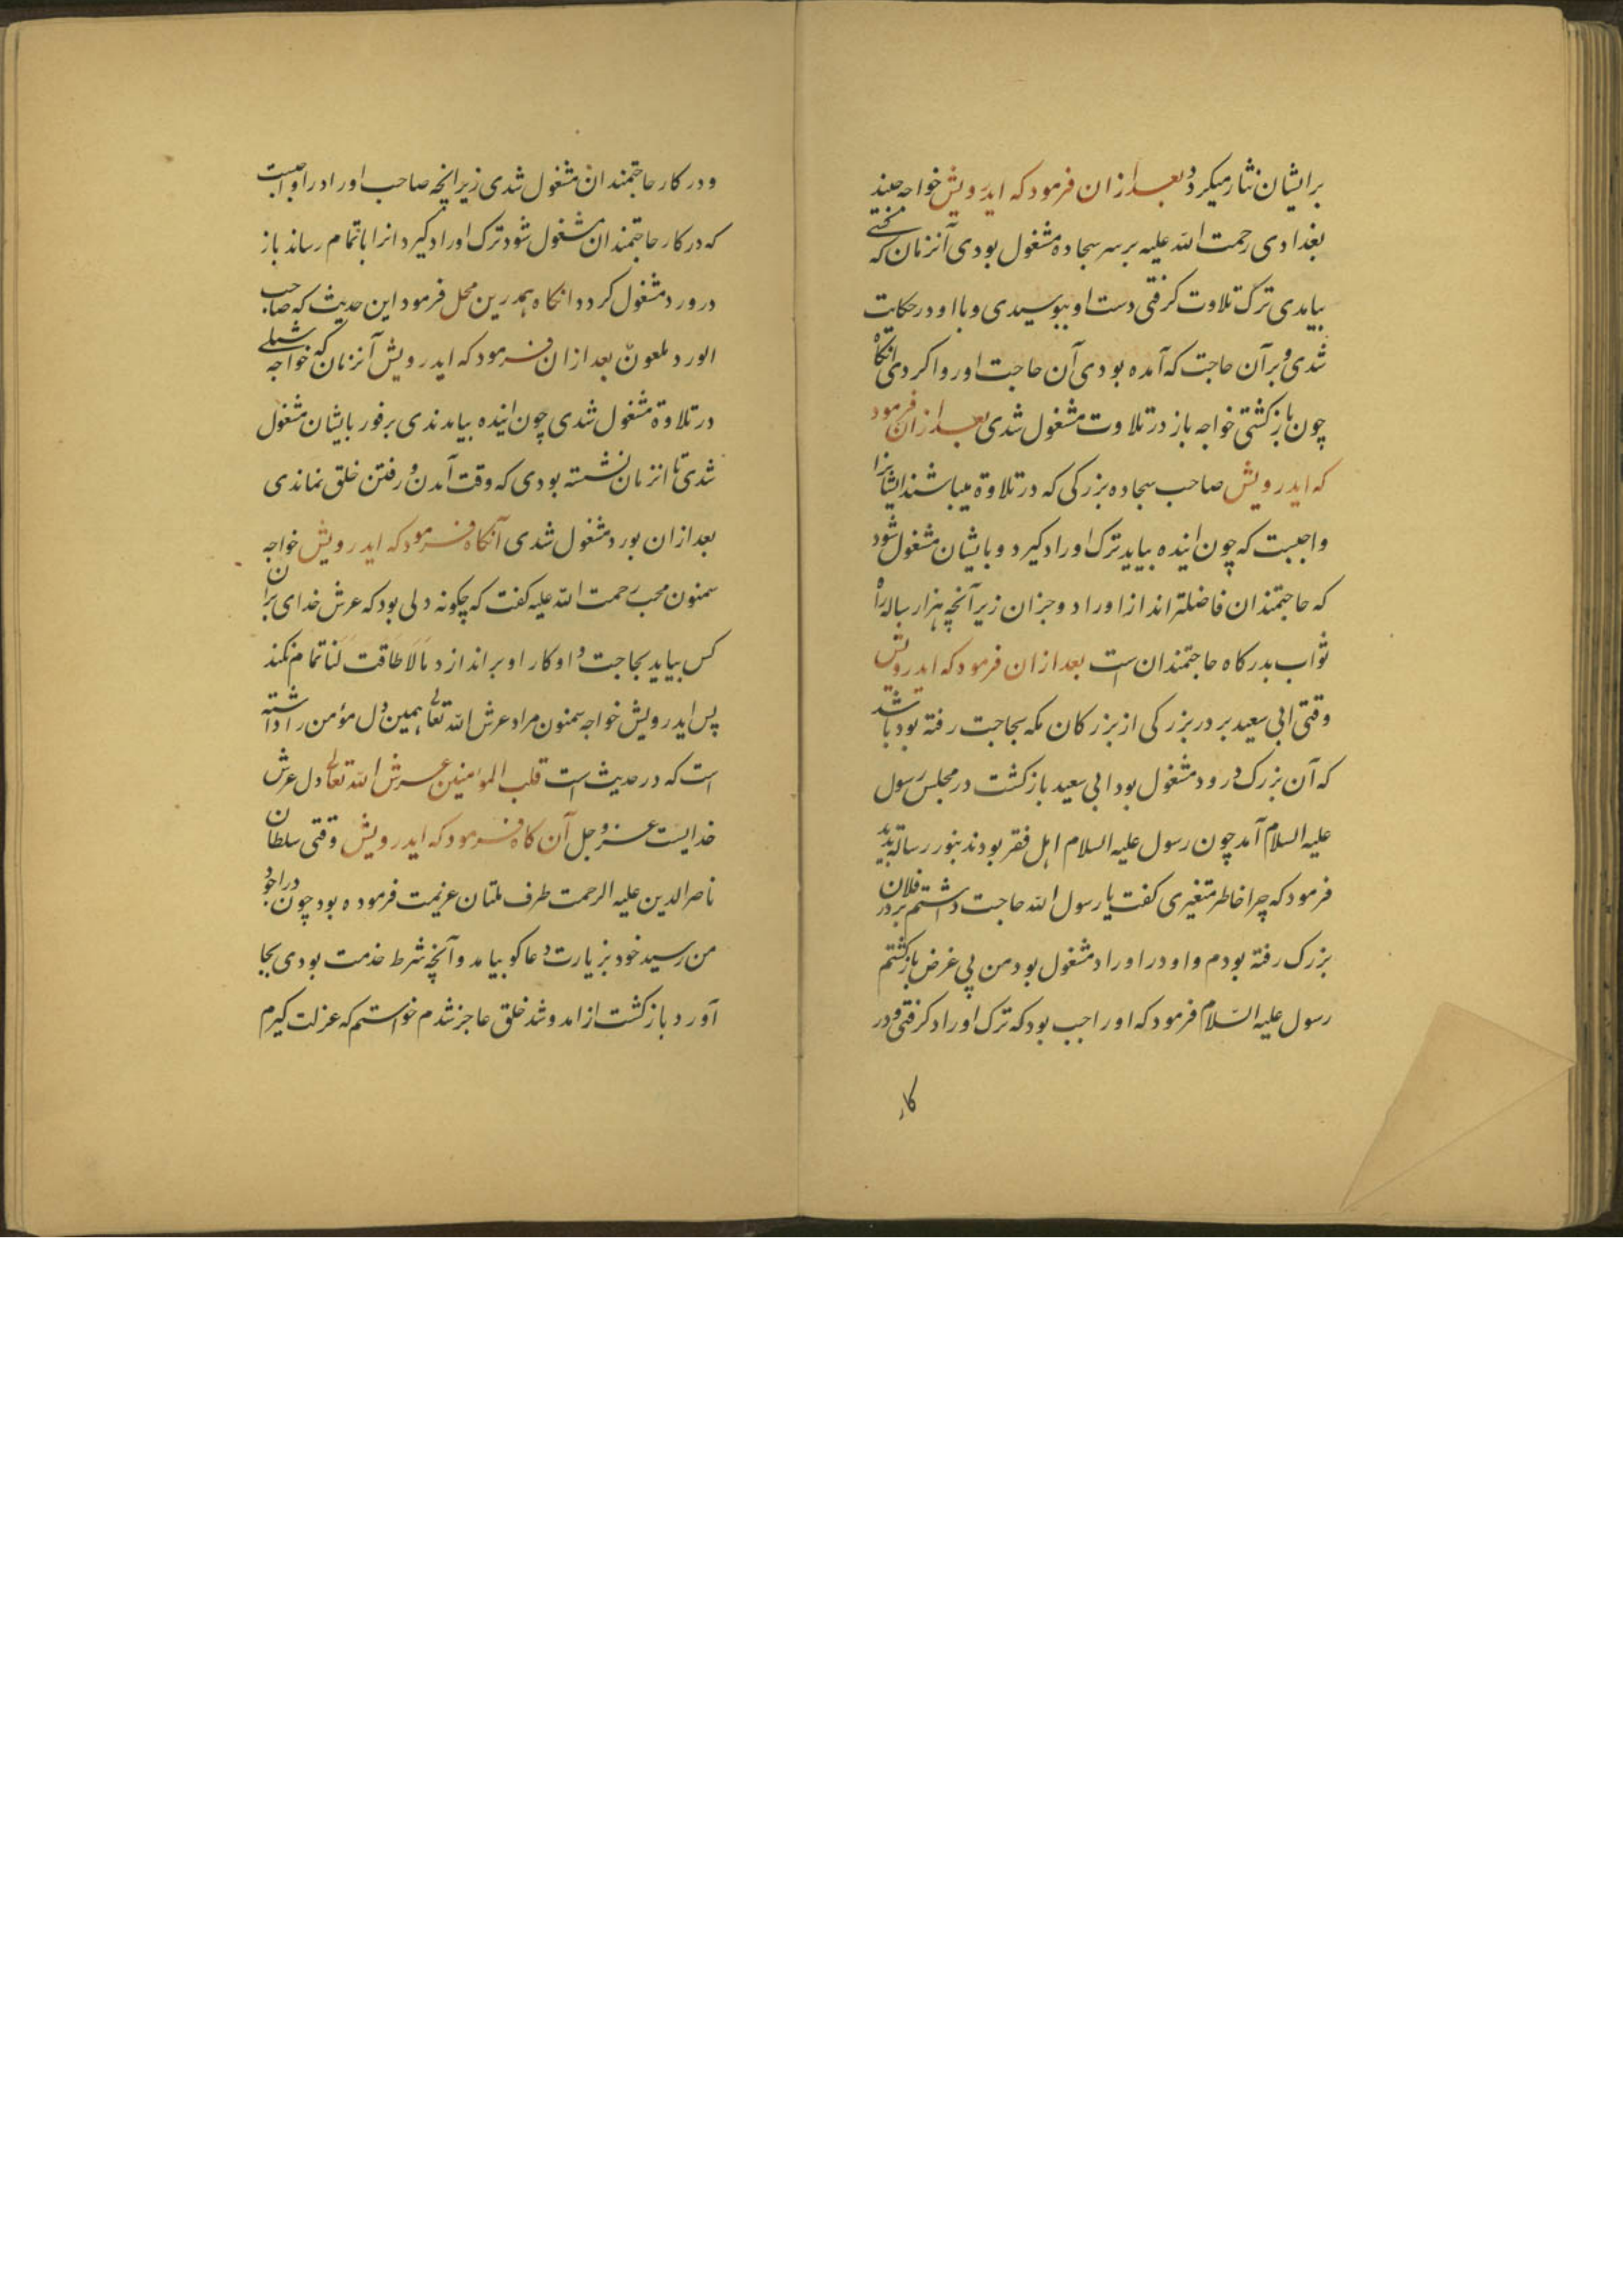 برایشان نثار میکرد و بعد ازان فرمود که ایدرویش خواجه جنید
بغدادی رحمت الله علیه بر سر سجاده مشغول بودی آنزمان که
بیامدی ترک تلاوت گرفتی دست او ببوسیدی و با او در حکایت
شدی و بر آن حاجت که آمده بودی آن حاجت او روا کردی انگاه
چون بازگشتی خواجه باز در تلاوت مشغول شدی بعد ازان فرمود
که ایدرویش صاحب سجاده بزرگی که در تلاوة میباشند ایشانرا
واجبست که چون اینده بیاید ترک اوراد گیرد و بایشان مشغول شود
که حاجتمندان فاضلتر انداز اوراد و جزان زیرآنچه هزار ساله راه
ثواب بدرکاه حاجتمندان است بعد ازان فرمود که ایدرویش
وقتی ابی سعید بر در بزرکی از بزرکان مکه بحاجت رفته بود باشد
که آن بزرک در ورد مشغول بود ابی سعید بازکشت در مجلس رسول
علیه السلام آمد چون رسول علیه السلام اهل فقر بودند بنور رسالة بدید
فرمود که چرا خاطر متغیری کفت یا رسول الله حاجت داشتم بر در فلان
بزرک رفته بودم و او در اوراد مشغول بود من پی غرض بازکشتم
رسول علیه السّلام فرمود که اورا جب بود که ترک اوراد کرفتی و در
کار
و در کار حاجتمندان مشغول شدی زیرانچه صاحب اوراد را واجبست
که در کار حاجتمندان مشغول شود ترک اوراد کیرد انرا باتمام رساند باز
در ورد مشغول کردد انکاه بهمدرین محل فرمود این حدیث که صاحب
الورد ملعون بعد ازان فرمود که ایدرویش آنزمان که خواجه شبلی
در تلاوة مشغول شدی چون اینده بیامدندی برفور بایشان مشغول
شدی تا انزمان نشسته بودی که وقت آمدن و رفتن خلق نماندی
بعد ازان بورد مشغول شدی آنکاه فرمود که ایدرویش خواجه
سمنون محب رحمت الله علیه کفت که چکونه دلی بود که عرش خدای بران
کس بیاید بحاجت و او کار او براندازد مالا طاقت لنا تمام نکند
پس ایدرویش خواجه سمنون مراد عرش الله تعالی همین دل مؤمن را داشته
است که در حدیث است قلب المؤمنین عرش الله تعالی دل عرش
خدایست عز و جل آن کاه فرمود که ایدرویش وقتی سلطان
ناصر الدین علیه الرحمت طرف ملتان عزیمت فرموده بود چون در اجود
من رسید خود بزیارت دعاکو بیامد و آنچه شرط خدمت بودی بجا
آورد بازکشت از امد و شد خلق عاجز شدم خواستم که عزلت کیرم